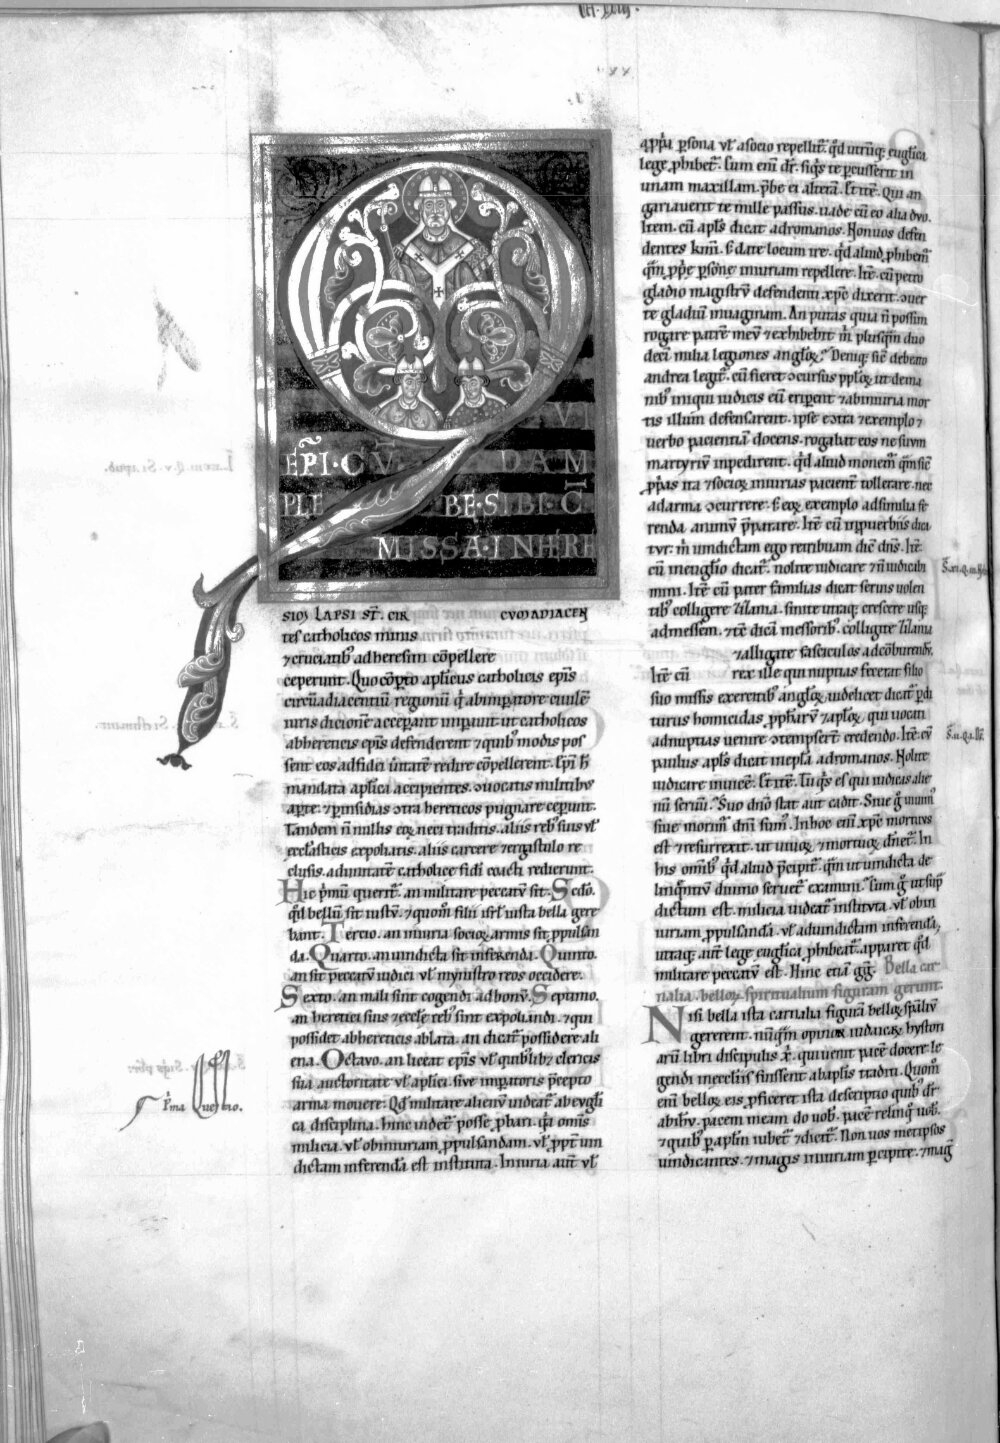 VI
EP̅I·CV̅·DAM
PLEBE·SIBI·C̅
MISSA·IN HERE
SIO̅ LAPSI ST̅. CIR CV̅MADIACEN
tes catholicos minis
⁊cruciatib; ad heresim co̅pellere
ceperunt. Quo co̅perto aplicus catholicis ep̅is
circu̅adiacentiu̅ regionu̅ q' ab imperatore ciuile̅
iuris dictione̅ acceperant imperauit ut catholicos
ab hereticis ep̅is defenderent ⁊quib; modis pos
sent eos ad fidei u̅itate̅ redire co̅pellerent. Ep̅i h̅
mandata aplica accipientes. ɔuocatis militib;
aperte. ⁊p insidias ɔtra hereticos pugnare ceperunt.
Tandem n̅ nullis eoꝝ neci traditis. aliis reb; suis vl̅
eccl̅asticis expoliatis. aliis carcere ⁊ergastulo re
clusis. ad unitate̅ catholice fidei coacti redierunt.
Hic p'mu̅ querit̅. an militare peccatu̅ sit. Sedo̅.
q̅d bellu̅ sit iustu̅. ⁊quom̅ filii isrl̅ iusta bella gere
bant. Tercio. an iniuria socioꝝ armis sit p̱pulsan
da. Quarto. an uindicta sit inferenda. Quinto.
an sit peccatu̅ iudici vl̅ mynistro reos occidere.
Sexto. an mali sint cogendi ad bonu̅. Septimo.
an heretici suis ⁊eccl̅e reb; sint expoliandi. ⁊qui
possidet ab hereticis ablata. an dicat̅ possidere ali
ena. Octavo. an liceat ep̅is vl̅ quib;lib; clericis
sua auctoritate vl̅ aplici. sive imp̱atoris p̱cepto
arma mouere. Qd̅ militare alienu̅ uideat̅ ab eug̅li
ca disciplina. hinc uidet̅ posse p̱bari. q'a omis̅
milicia. vl̅ ob iniuriam p̱pulsandam. vl̅ p̱pt̅ uin
dictam inferenda̅ est instituta. Iniuria aut̅ vl̅
a p̱p'a p̱sona vl̅ a socio repellit̅. q̅d utru̅q; eug̅lica
lege p̱hibet̅. Cum eni̅ dr̅. siq's te p̱cusserit in
unam maxillam. p̱be ei altera̅. Et ite̅. Qui an
gariauerit te mille passus. uade cu̅ eo alia dvo.
Item. cu̅ apl̅s dicat ad romanos. Non uos defen
dentes kmi̅. s; date locum ire. q̅d aliud p̱hibem̅
qm̅ p̱p'e p̱sone̜ iniuriam repellere. Ite̅. cu̅ petro
gladio magistru̅ defendenti xp̅c dixerit. ɔuer
te gladiu̅ in uaginam. An putas quia n̅ possim
rogare patre̅ meu̅ ⁊exhibebit m̅ plusq̅m duo
deci̅ milia legiones angl̅oꝝ? Deniq; sic̅ de beato
andrea legit̅. cu̅ fieret ɔcursus ppl̅oꝝ ut de ma
nib; iniqui iudicis eu̅ eriperent ⁊ab iniuria mor
tis illum defensarent. ipse eɔtra ⁊exemplo ⁊
uerbo pacientia̅ docens. rogabat eos ne suvm
martyriv̅ inpedirent. q̅d aliud monem̅ q̅m sic̅
p̱p'as ita ⁊socioꝝ iniurias pacient̅ tollerare. nec
ad arma ɔcurrere. s; eoꝝ exemplo ad similia fe
renda animu̅ p̱parare. Ite̅ cu̅ in puerbiis dica
tvr. m̅ uindictam ⁊ego retribuam dic̅ dns̅. Ite̅.
cu̅ in eug̅lio dicat̅. nolite iudicare ⁊n̅ iudicabi
mini. Ite̅ cu̅ pater familias dicat seruis uolen
tib; colligere zizania. sinite utraq; crescere usq;
ad messem. ⁊tc̅ dica̅ messorib;. colligite zizania
⁊alligate fasciculos ad co̅burendu̅.
Ite̅ cu̅ rex ille qui nuptias fecerat filio
suo missis exercitib; angl̅oꝝ. uidelicet dicat̅ p̱di
turus homicidas p̱phar̅v ⁊apl̅oꝝ. qui uocati
ad nuptias uenire ɔtempser̅t credendo. Ite̅. cu̅
paulus apl̅s dicat in epl̅a ad romanos. Nolite
iudicare inuice̅. Et ite̅. Tu q's es qui iudicas alie
nu̅ seruu̅. Suo dn̅o stat aut cadit. Siue g̅ uiuim;
siue morim̅ dni̅ sum;. In hoc eni̅ xp̅c mortuus
est ⁊resurrexit. ut uiuoꝝ ⁊mortuoꝝ dn̅et̅. In
his omib; q̅d aliud p̱cipit̅. q̅m ut uindicta de
linq̅ntiv̅ diuino seruet̅ examini. Cum g̅ ut sup̅
dictum est. milicia uideat̅ institvta. vl̅ ob in
iuriam p̱pulsanda̅. vl̅ ad uindictam inferenda̅.
utraq; aut̅ lege eug̅lica p̱hibeat̅. apparet q̅d
militare peccatv̅ est. Hinc etia̅ g̅g̅. Bella car
nalia. belloꝝ spiritualium figuram gerunt.
Nisi bella ista carnalia figura̅ belloꝝ sp̅aliv̅
gererent. nu̅q̅m opinor iudaicaꝝ hystori
aru̅ libri discipulis x̅. qui uenit pace̅ docere. le
gendi in eccl̅iis fuissent ab aplis traditi. Quom̅
eni̅ belloꝝ eis p̱ficeret ista descriptio quib; dr̅
ab ih̅v. pacem meam do uob. pace̅ relinq; uob.
⁊quib; p̱ ap̅lm iubet̅ ⁊dicit̅. Non uos metipsos
uindicantes. ⁊magis iniuriam p̱cipite. ⁊mag̅
P'ma Questio.